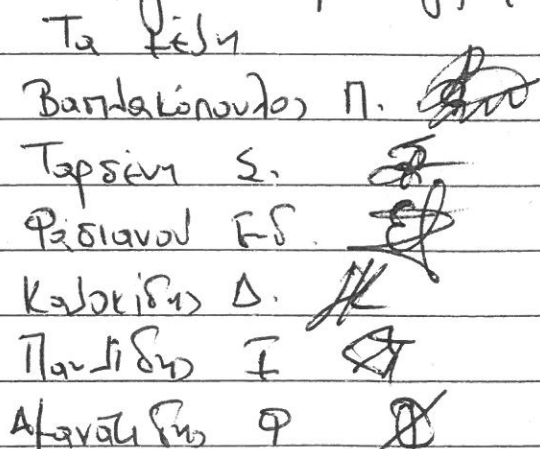 Τα μέλη
Βασιλακόπουλος Π.
Ταρσένη Σ.
Φασιανού Εδ.
Καλοκίδης Δ.
Παυλίδης Ι
Αμανατίδης Φ